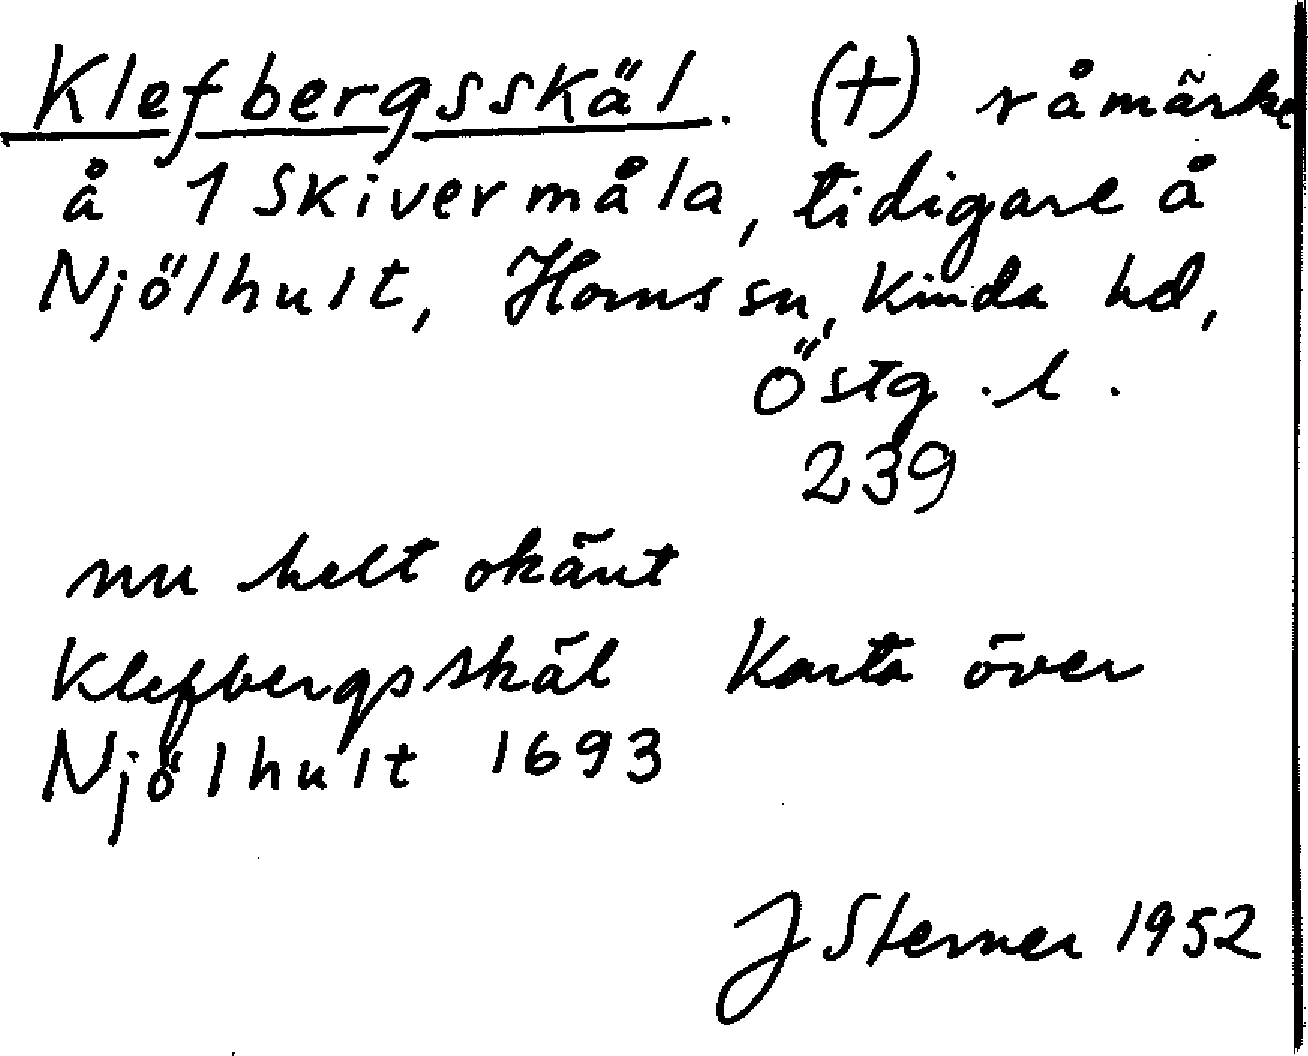 Klefbergsskäl. (†) råmärke
å 1 Skivermåla, tidigare å
Njölhult, Horns sn, Kinda hd,
Östg.l.
239
nu helt okänt
Klefbergsskäl Karta över
Njölhult 1693
J Sterner 1952